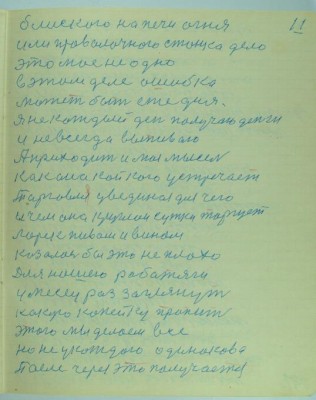 11
блиского на печи огня
или проволочного станка дело
это мое не одно
в этом деле ошибка
может быт сие дня.
Я не каждый ден получаю денги
и не всегда выпиваю
А приходит и мая мысел
как она кой кого устречает
Тарговля уведина для чего
и чем она круглои сутки таргует
море пивам и винам
казалос бы это не плохо
Для нашево работяги
и месец раз заглянут
како копейку пропит
этого мы делаем все
но не укаждого одинакова
После через это получается